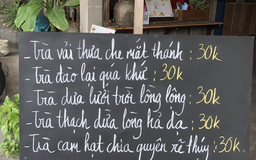 - Trà vải thưa che mắt thánh : 30k
- Trà đào lại quá khứ : 30k
- Trà dưa lưới trời lồng lộng : 30k
- Trà thạch dừa lòng hả dạ : 30k
- Trà cam hạt chia quyền rẽ thúy : 30k